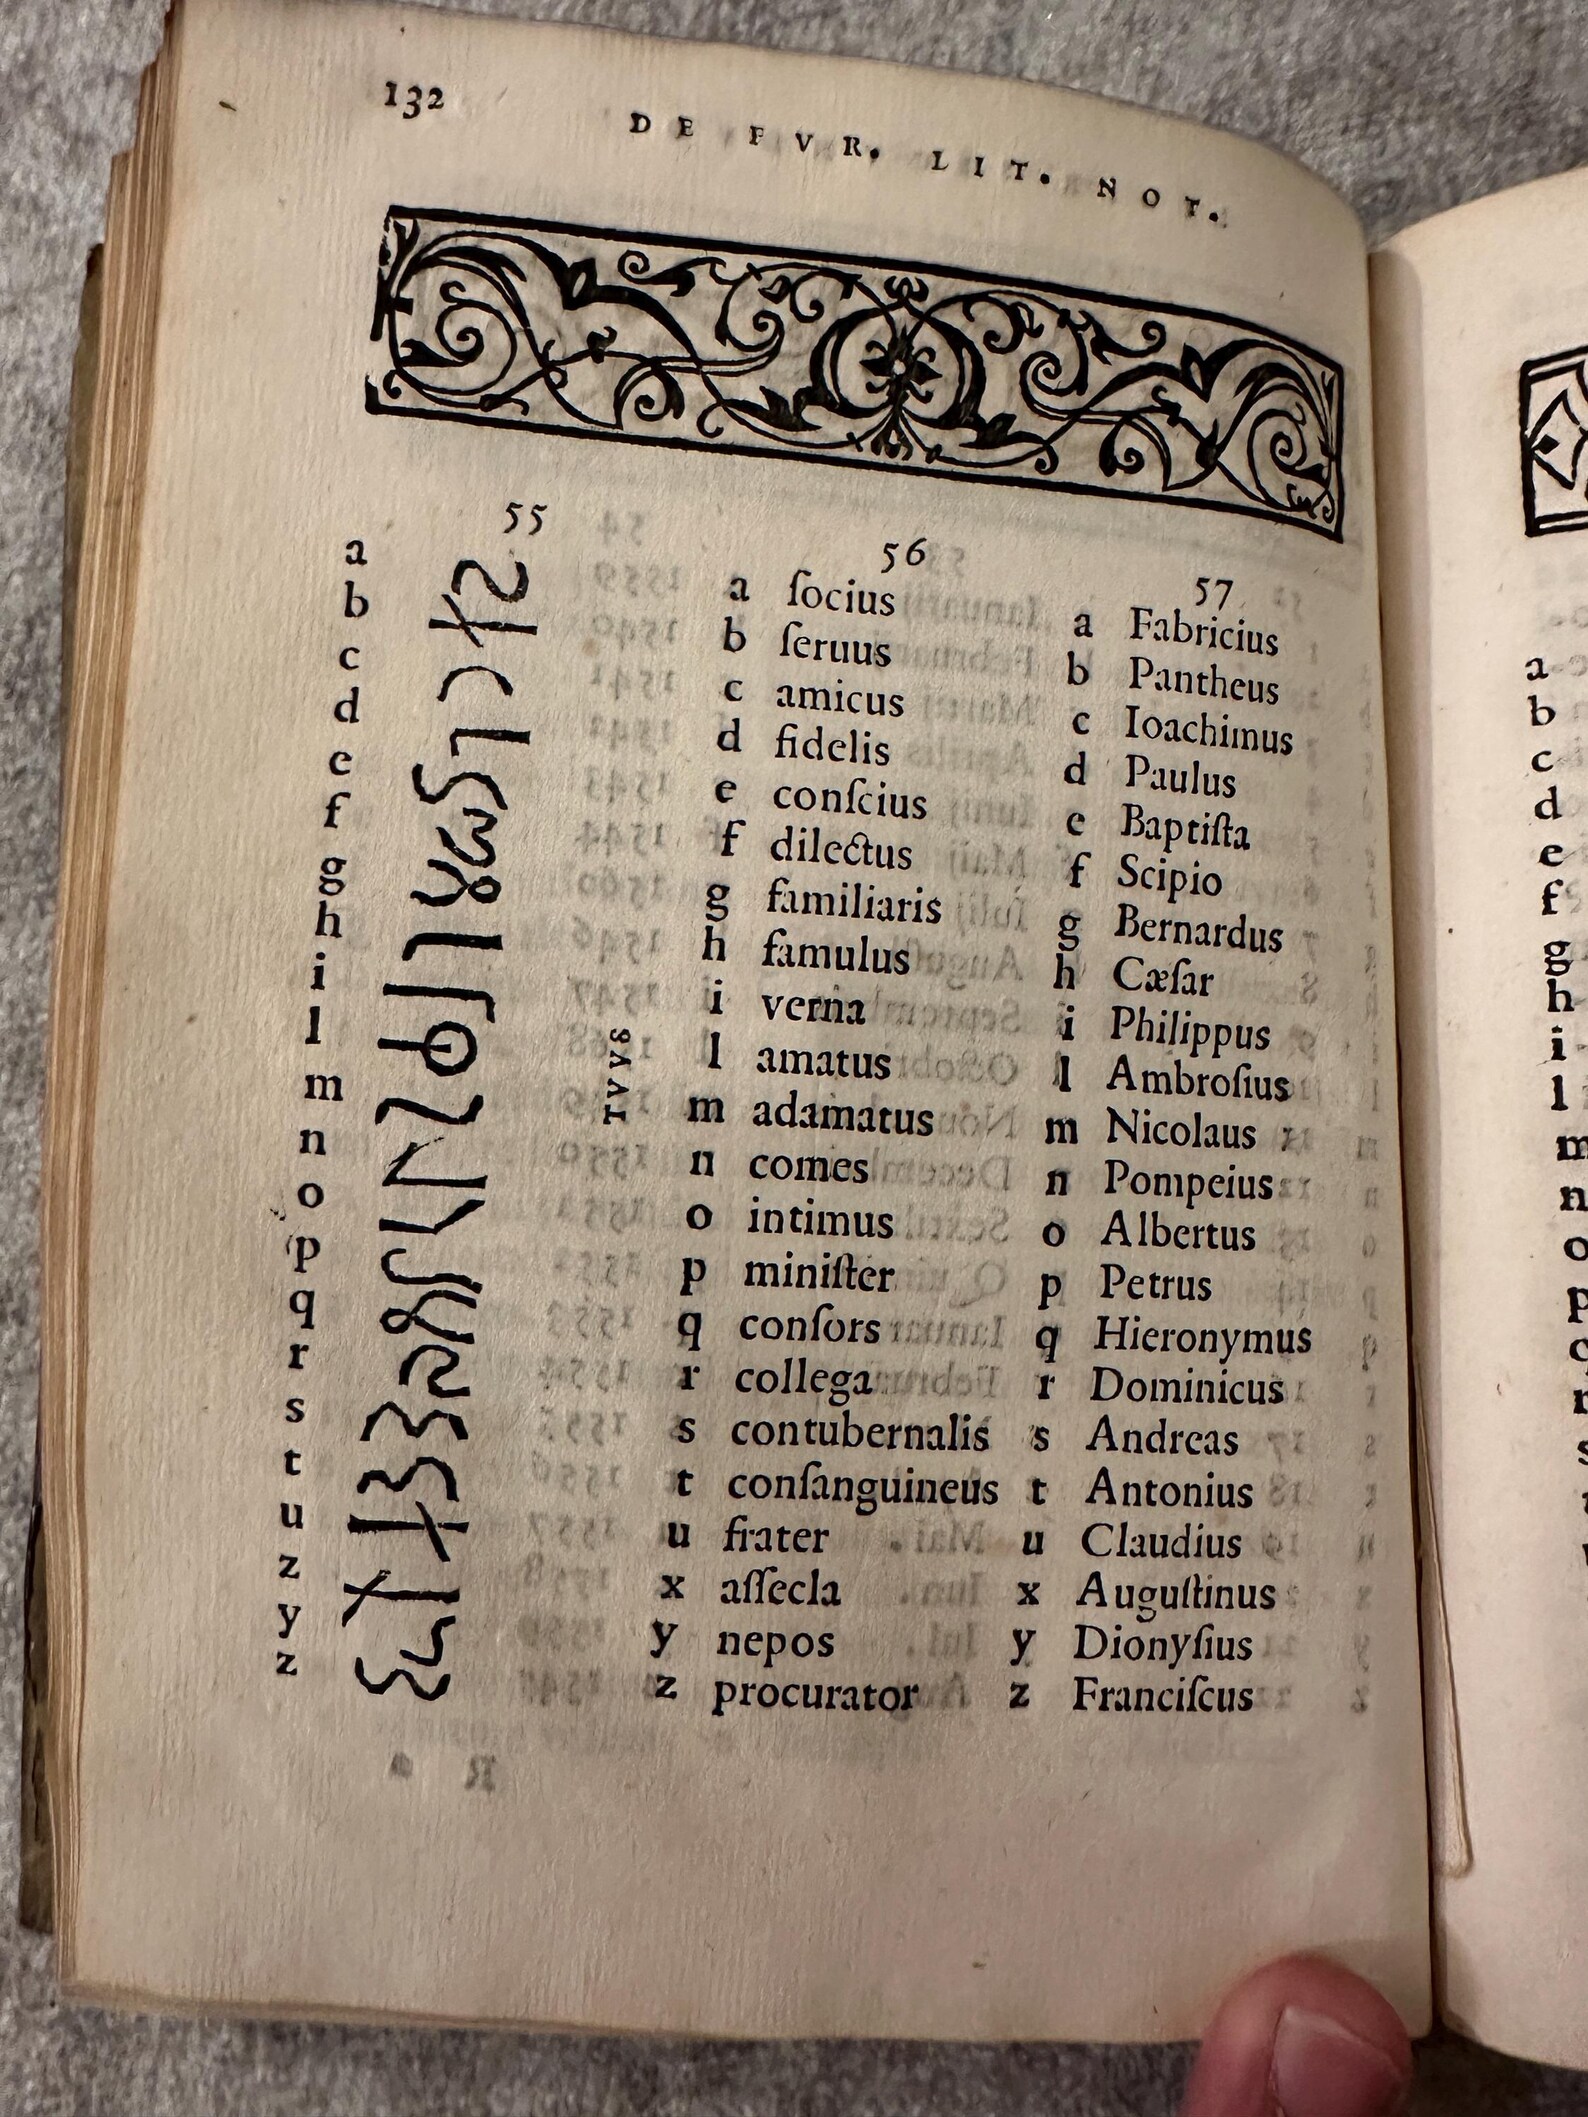 132
DE FVR. LIT. NOT.
55
a
b
c
d
e
f
g
h
i
l
m
n
o
p
q
r
s
t
u
z
y
z
56
a ſocius
b ſeruus
c amicus
d fidelis
e conſcius
f dilectus
g familiaris
h famulus
i verna
l amatus
m adamatus
n comes
o intimus
p miniſter
q conſors
r collega
s contubernalis
t conſanguineus
u frater
x aſſecla
y nepos
z procurator
57
a Fabricius
b Pantheus
c Ioachimus
d Paulus
e Baptiſta
f Scipio
g Bernardus
h Cæſar
i Philippus
l Ambroſius
m Nicolaus
n Pompeius
o Albertus
p Petrus
q Hieronymus
r Dominicus
s Andreas
t Antonius
u Claudius
x Auguſtinus
y Dionyſius
z Franciſcus
a
b
c
d
e
f
g
h
i
l
m
n
o
p